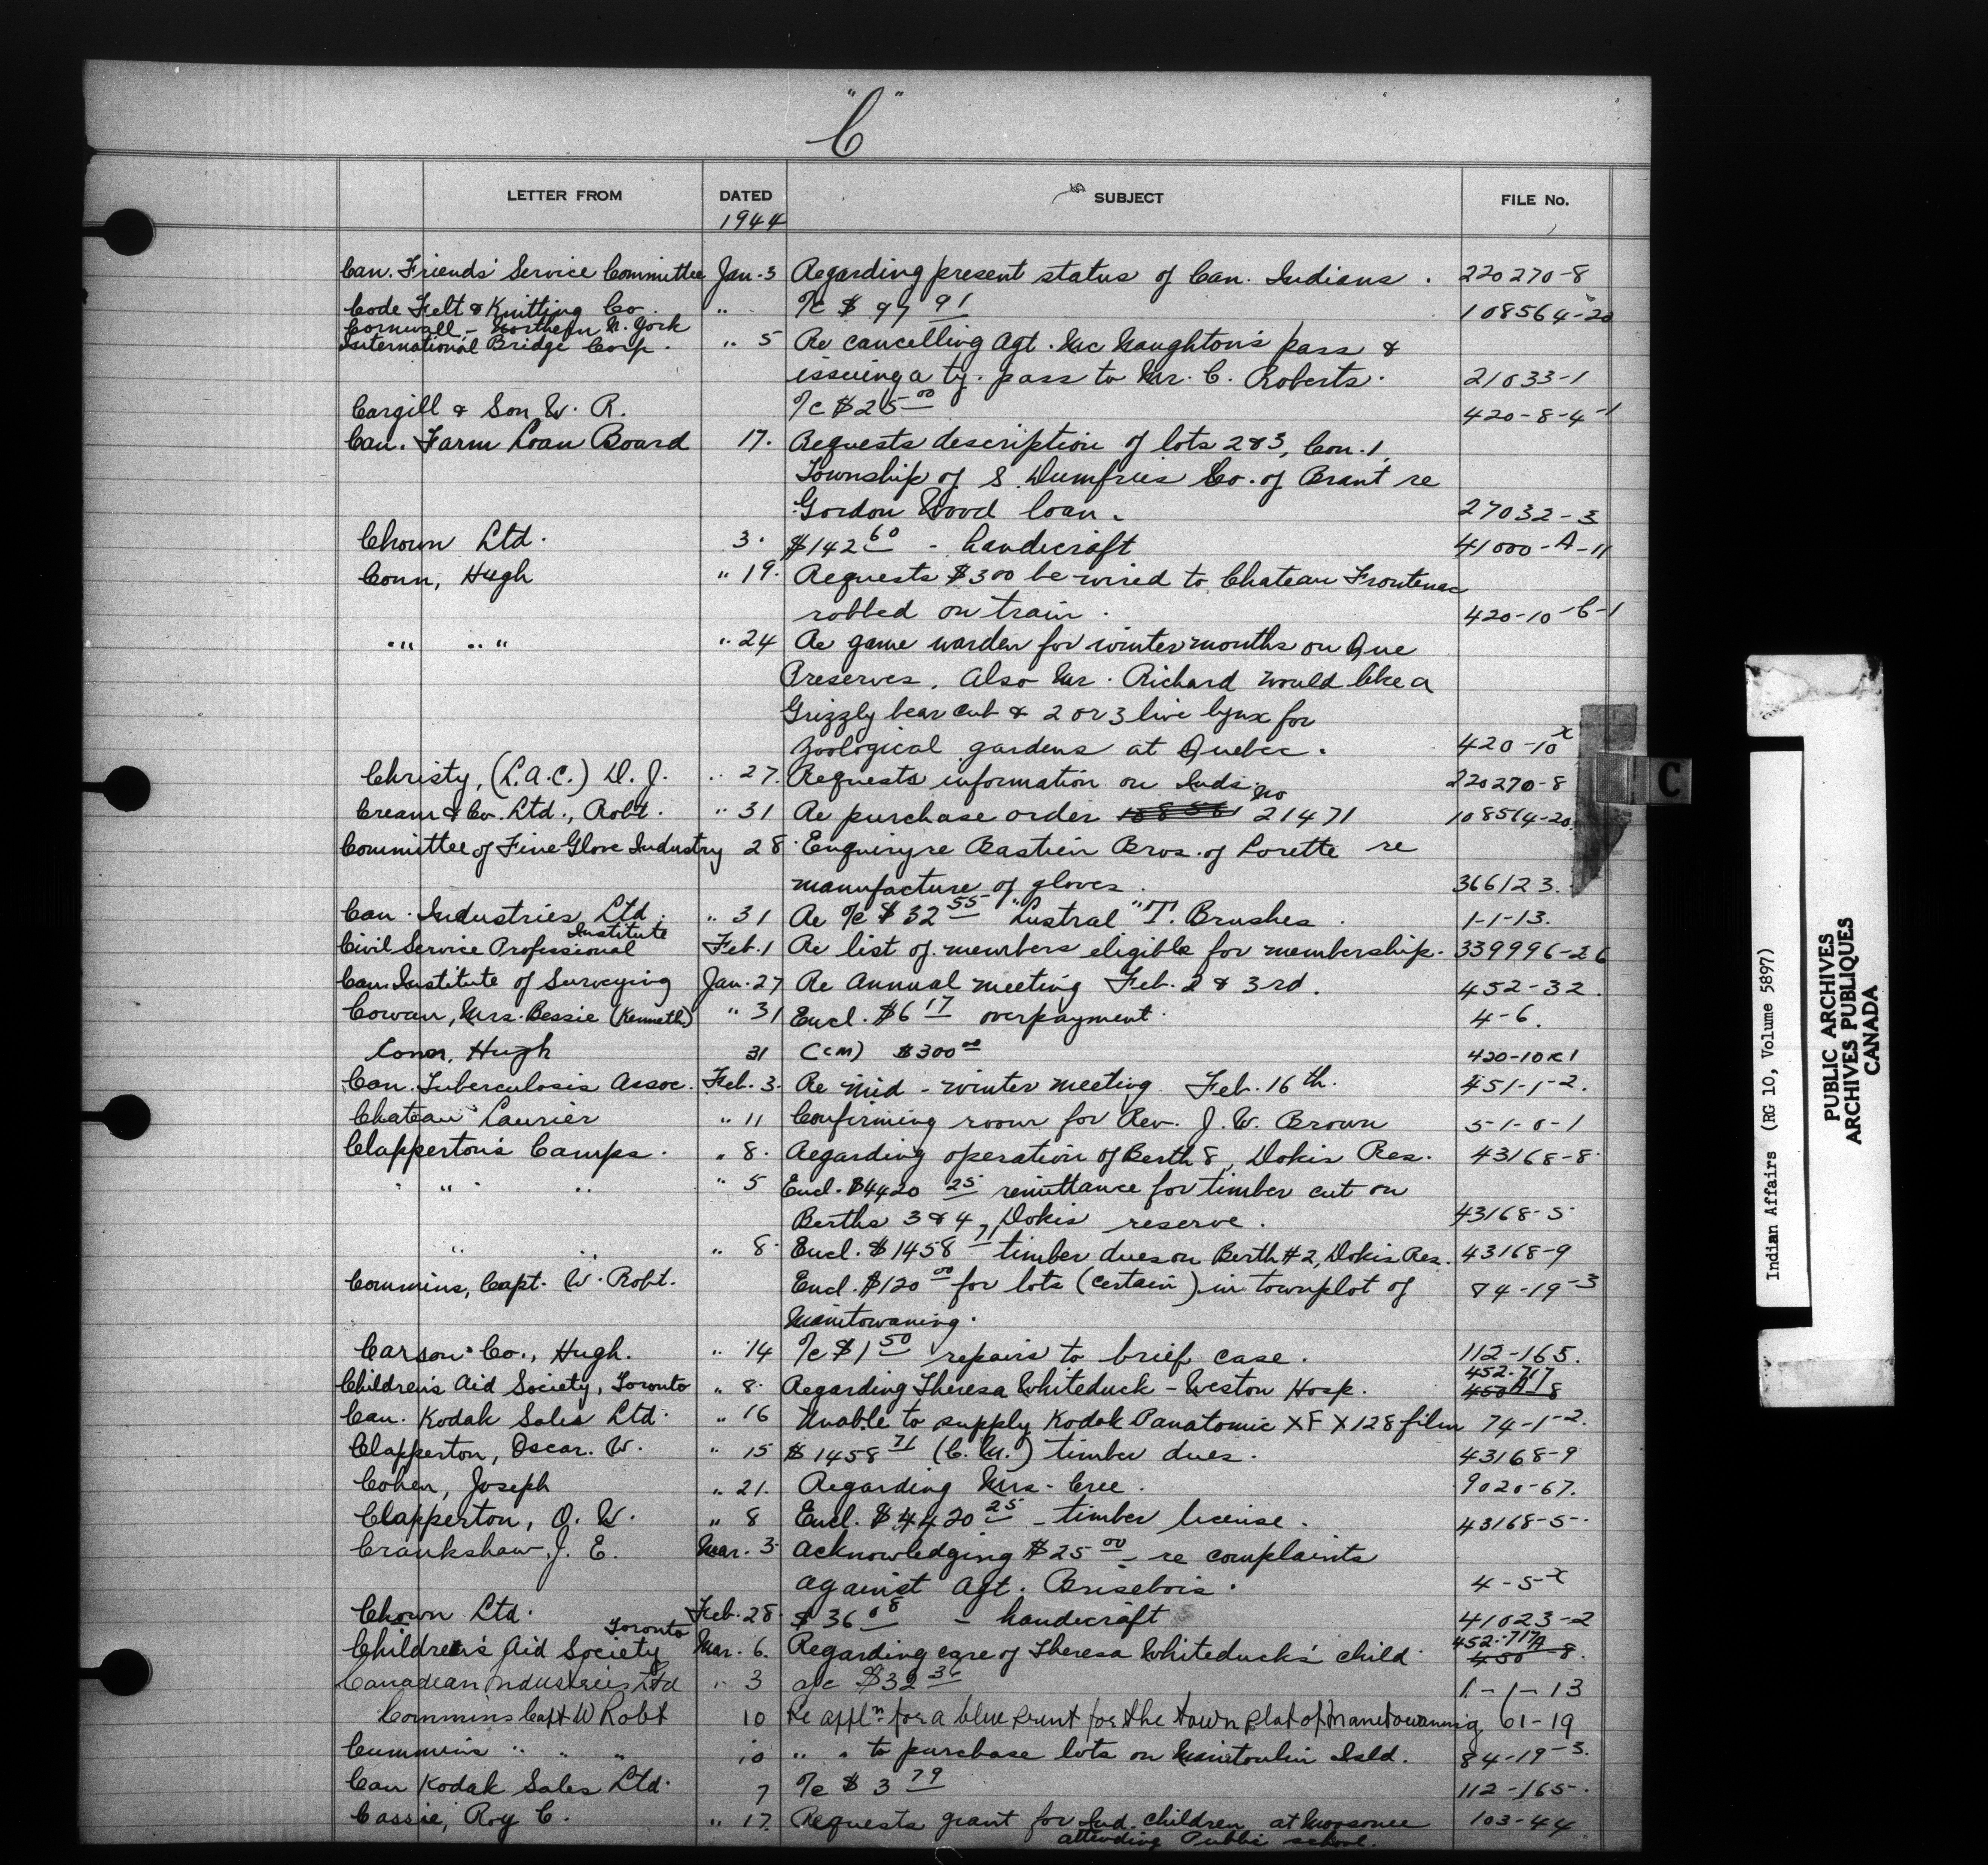 "C"
LETTER FROM DATED SUBJECT FILE No.
1944
Can. Friends' Service Committee Jan. 3 Regarding present status of Can. Indians. 220270-8
Code Felt & Knitting Co. " ℀ $ 97 91 108564-20
Cornwall - Northern N. York
International Bridge Corp. " 5 Re cancelling Agt. Mc Naughton's pass &
issuing a ty. pass to Mr. C. Roberts. 21033-1
Cargill & Son W. R. ℀ $25 00 420-8-4-1
Can. Farm Loan Board 17. Requests description of lots 2 & 3, Con. 1,
Township of S. Dumfries Co. of Brant re
Gordon Wood loan. 27032-3
Chown Ltd. 3. $142 60 - handicraft 41000-A-11
Conn, Hugh " 19. Requests $300 be wired to Chateau Frontenac
robbed on train. 420-10-C-1
" " " 24 Re game warden for winter months on Que
Preserves. Also Mr. Richard would like a
Grizzly bear cub & 2 or 3 live lynx for
zoological gardens at Quebec. 420-10 x
Christy, (L.A.C.) D. J. " 27. Requests information on Inds. 220270-8
Cream & Co. Ltd., Robt. " 31 Re purchase order No 21471 108564-20
Committee of Fine Glove Industry 28 Enquiry re Bastien Bros. of Lorette re
manufacture of gloves. 366123.
Can. Industries Ltd. " 31 Re ℀ $32 55 "Lustral" T. Brushes. 1-1-13.
Civil Service Professional Institute Feb. 1 Re list of members eligible for membership. 339996-26
Can. Institute of Surveying Jan. 27 Re Annual meeting Feb. 2 & 3rd. 452-32.
Cowan, Mrs. Bessie (Kenneth) " 31 Encl. $6 17 overpayment. 4-6.
Conn, Hugh 31 (CM) $300 00 420-10 C 1
Can. Tuberculosis Assoc. Feb. 3. Re mid-winter meeting Feb. 16th. 451-1-2.
Chateau Laurier " 11 Confirming room for Rev. J. W. Brown 51-0-1
Clapperton's Camps. " 8. Regarding operation of Berth 8, Dokis Res. 43168-8
" " " 5 Encl. $4420 25 remittance for timber cut on
Berths 3 & 4, Dokis reserve. 43168-5
" " " 8. Encl. $1458 71 timber dues on Berth #2, Dokis Res. 43168-9
Commins, Capt. W. Robt. Encl. $120 00 for lots (certain) in townplot of 84-19-3
Manitowaning.
Carson Co., Hugh. " 14 ℀ $1 50 repairs to brief case. 112-165.
Children's Aid Society, Toronto " 8. Regarding Theresa Whiteduck - Weston Hosp. 452-717 450 A-8
Can. Kodak Sales Ltd. " 16 Unable to supply Kodak Panatomic XFX128 film 74-1-2.
Clapperton, Oscar. W. " 15 $1458 71 (C. M.) timber dues. 43168-9
Cohen, Joseph " 21. Regarding Mrs. Cree. 9020-67.
Clapperton, O. W. " 8 Encl. $4420 25 - timber license. 43168-5.
Crankshaw, J. E. Mar. 3 Acknowledging $25 00 - re complaints
against Agt. Brisebois. 4-5 x
Chown Ltd. Feb. 28. $36 08 - handicraft 41023-2
Children's Aid Society Toronto Mar. 6. Regarding care of Theresa Whiteduck's child 452-717A 450-8.
Canadian Industries Ltd " 3 a/c $32 34 1-1-13
Commins Capt W Robt 10 Re appln for a blue print for the town plot of Manitowaning 61-19
Cummins " " " 10 " " to purchase lots on Manitoulin Isld. 84-19-3.
Can Kodak Sales Ltd. 7 ℀ $3 79 112-165.
Cassie, Roy C. " 17. Requests grant for Ind. children at Moosonee 103-44
attending Public school.
C
Indian Affairs (RG 10, Volume 5897)
PUBLIC ARCHIVES
ARCHIVES PUBLIQUES
CANADA